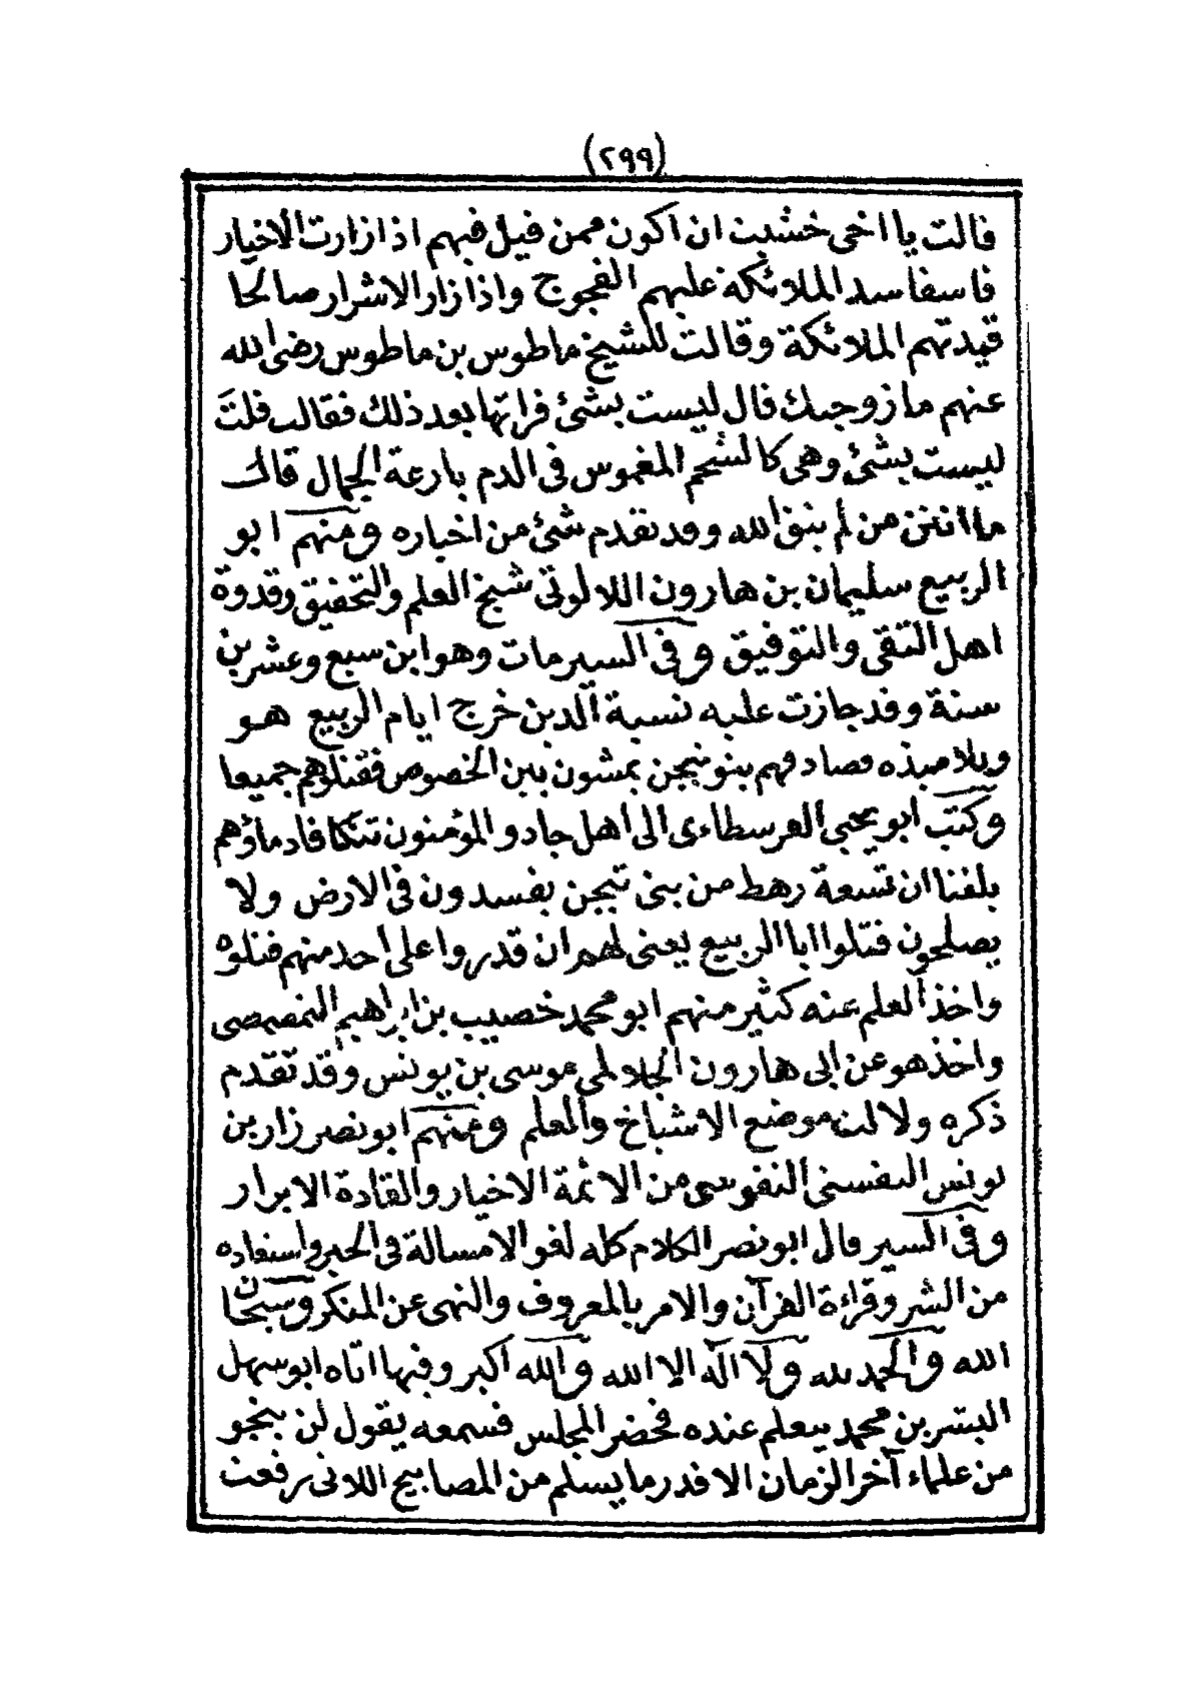 (٢٩٩)
قالت يا اخى خشيت ان اكون ممن قيل فيهم اذا زارت الاخيار
فاسقا سد الملائكة عليهم الفجوج واذا زار الاشرار صالحا
قيدتهم الملائكة وقالت للشيخ ماطوس بن ماطوس رضى الله
عنهم ما زوجتك قال ليست بشئ فراتها بعد ذلك فقالت قلتَ
ليست بشئ وهى كالشحم المغموس فى الدم بارعة الجمال قال
ما انتن من لم يتق الله وقد تقدم شئ من اخباره ومنهم ابو
الربيع سليمان بن هارون اللالوتى شيخ العلم والتحقيق وقدوة
اهل التقى والتوفيق وفى السير مات وهو ابن سبع وعشرين
سنة وقد جازت عليه نسبة الدين خرج ايام الربيع هو
وتلاميذه فصادفهم بنو تيجن يمشون بين الخصوص فقتلوهم جميعا
وكتب ابو يحيى الفرسطاءى الى اهل جادو المؤمنون تتكافا دماؤهم
بلغنا ان تسعة رهط من بنى تيجن يفسدون فى الارض ولا
يصلحون قتلوا ابا الربيع يعنى لهم ان قدروا على احد منهم قتلوه
واخذ العلم عنه كثير منهم ابو محمد خصيب بن ابراهيم التمصمصى
واخذ هو عن ابى هارون الجلالمى موسى بن يونس وقد تقدم
ذكره ولالت موضع الاشياخ والمعلم ومنهم ابو نصر زار بن
يونس التفستى النفوسى من الائمة الاخيار والقادة الابرار
وفى السير قال ابو نصر الكلام كله لغو الا مسالة فى الخير واستعاذه
من الشر وقراءة القرآن والامر بالمعروف والنهى عن المنكر وسبحان
الله والحمد لله ولا اله الا الله والله اكبر وفيها اتاه ابو سهل
البشر بن محمد يتعلم عنده فحضر المجلس فسمعه يقول لن ينجو
من علماء آخر الزمان الا قدر ما يسلم من المصابيح اللاتى رفعت